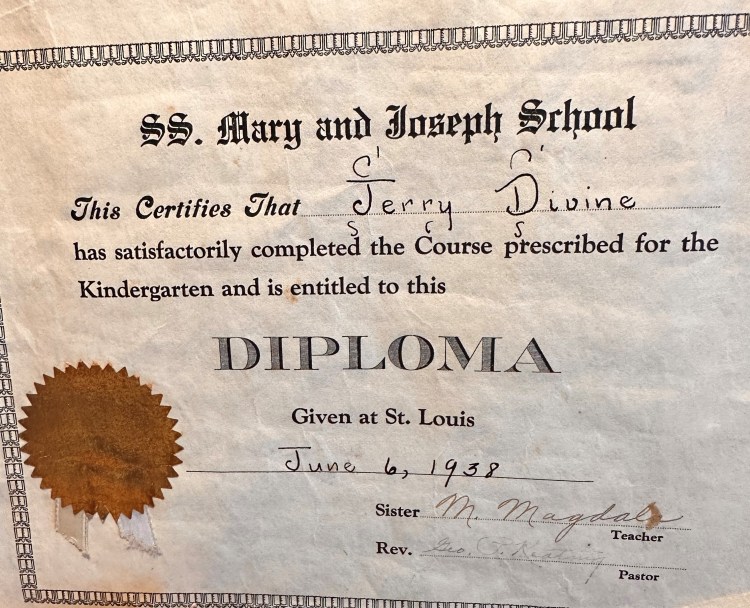 SS. Mary and Joseph School
This Certifies That Jerry Divine
has satisfactorily completed the Course prescribed for the
Kindergarten and is entitled to this
DIPLOMA
Given at St. Louis
June 6, 1938
Sister M.
Teacher
Rev. Geo.
Pastor